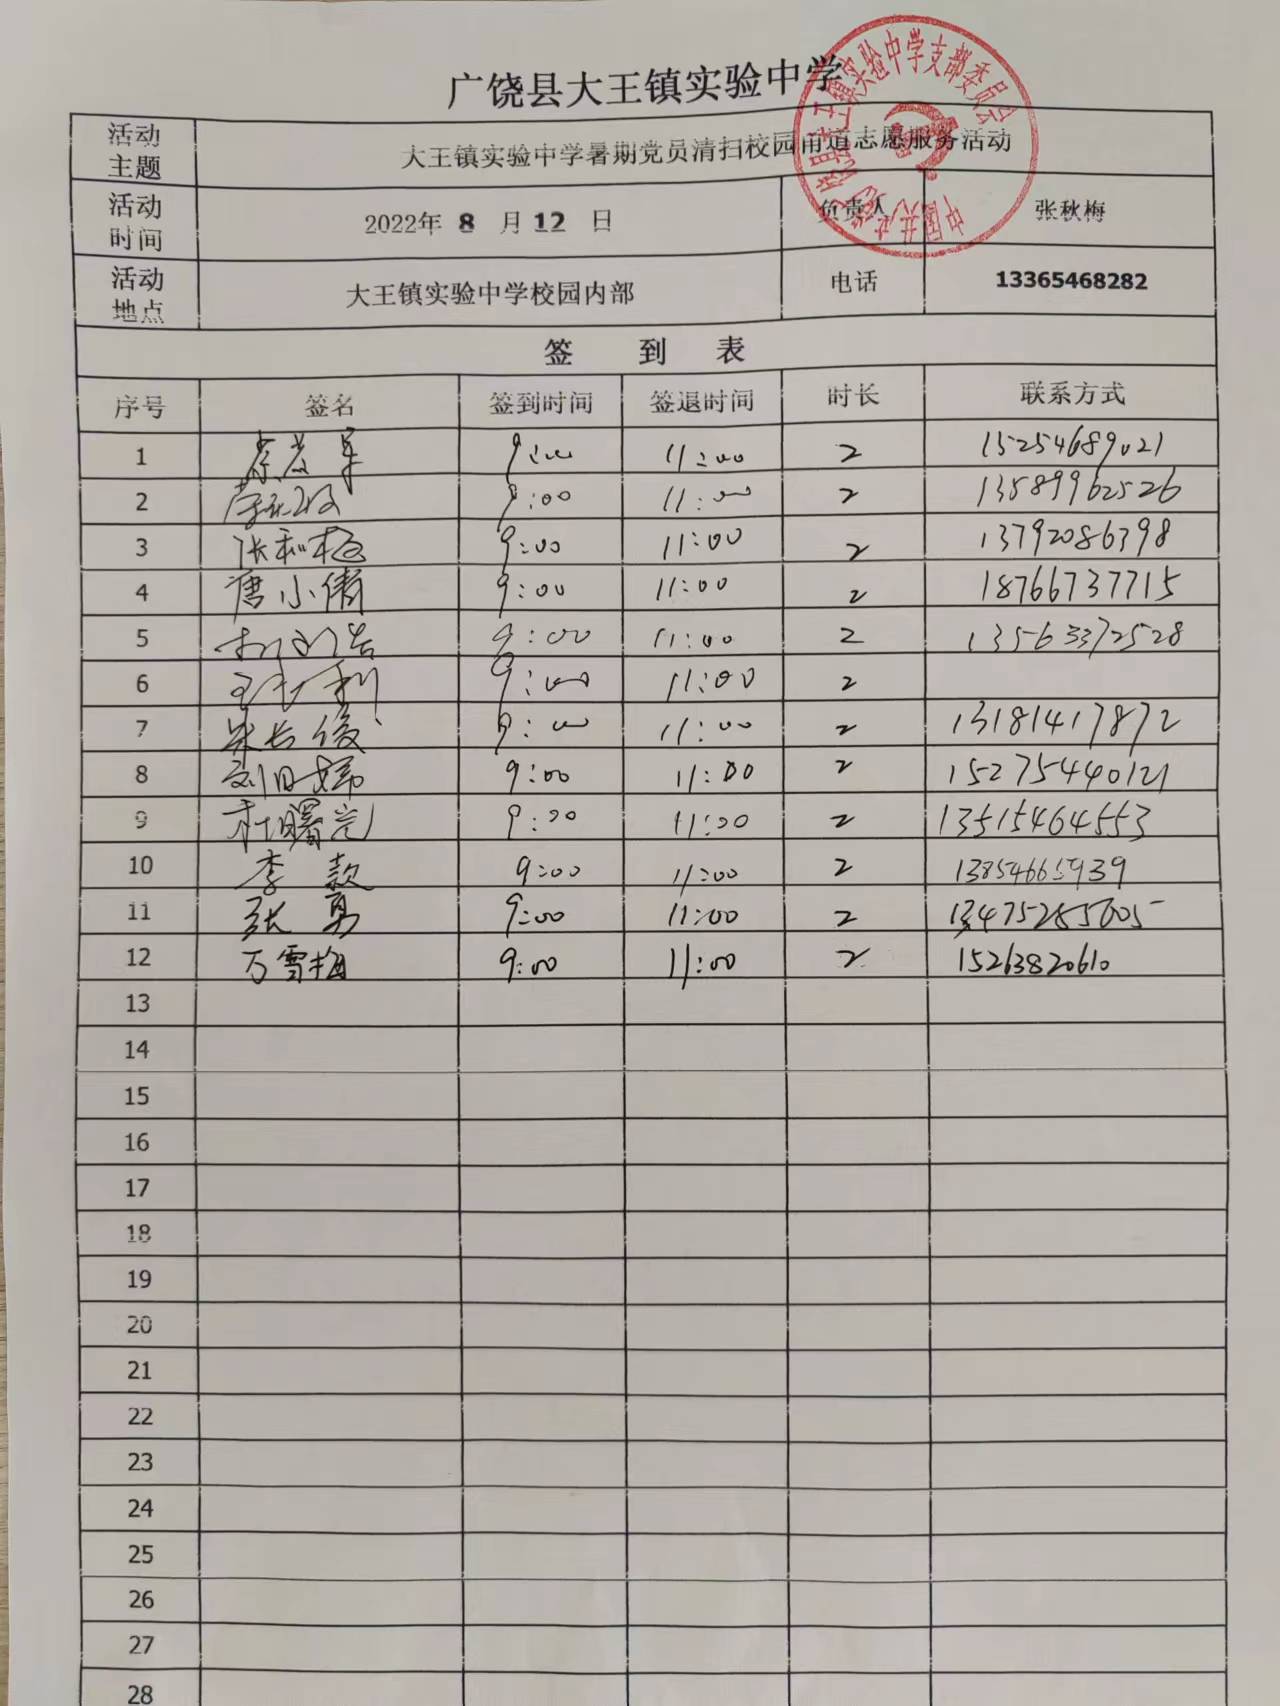 广饶县大王镇实验中学
活动主题 大王镇实验中学暑期党员清扫校园甬道志愿服务活动
活动时间 2022年 8 月 12 日 负责人 张秋梅
活动地点 大王镇实验中学校园内部 电话 13365468282
签 到 表
序号 签名 签到时间 签退时间 时长 联系方式
1 9:00 11:00 2 15254689021
2 9:00 11:00 2 13589962526
3 9:00 11:00 2 13792086398
4 唐小倩 9:00 11:00 2 18766737715
5 9:00 11:00 2 13563372528
6 9:00 11:00 2
7 9:00 11:00 2 13181417872
8 9:00 11:00 2 15275440121
9 杜曙光 9:00 11:00 2 13515464553
10 李款 9:00 11:00 2 13854665939
11 张勇 9:00 11:00 2 13475285605
12 万雪梅 9:00 11:00 2 15263820610
13
14
15
16
17
18
19
20
21
22
23
24
25
26
27
28